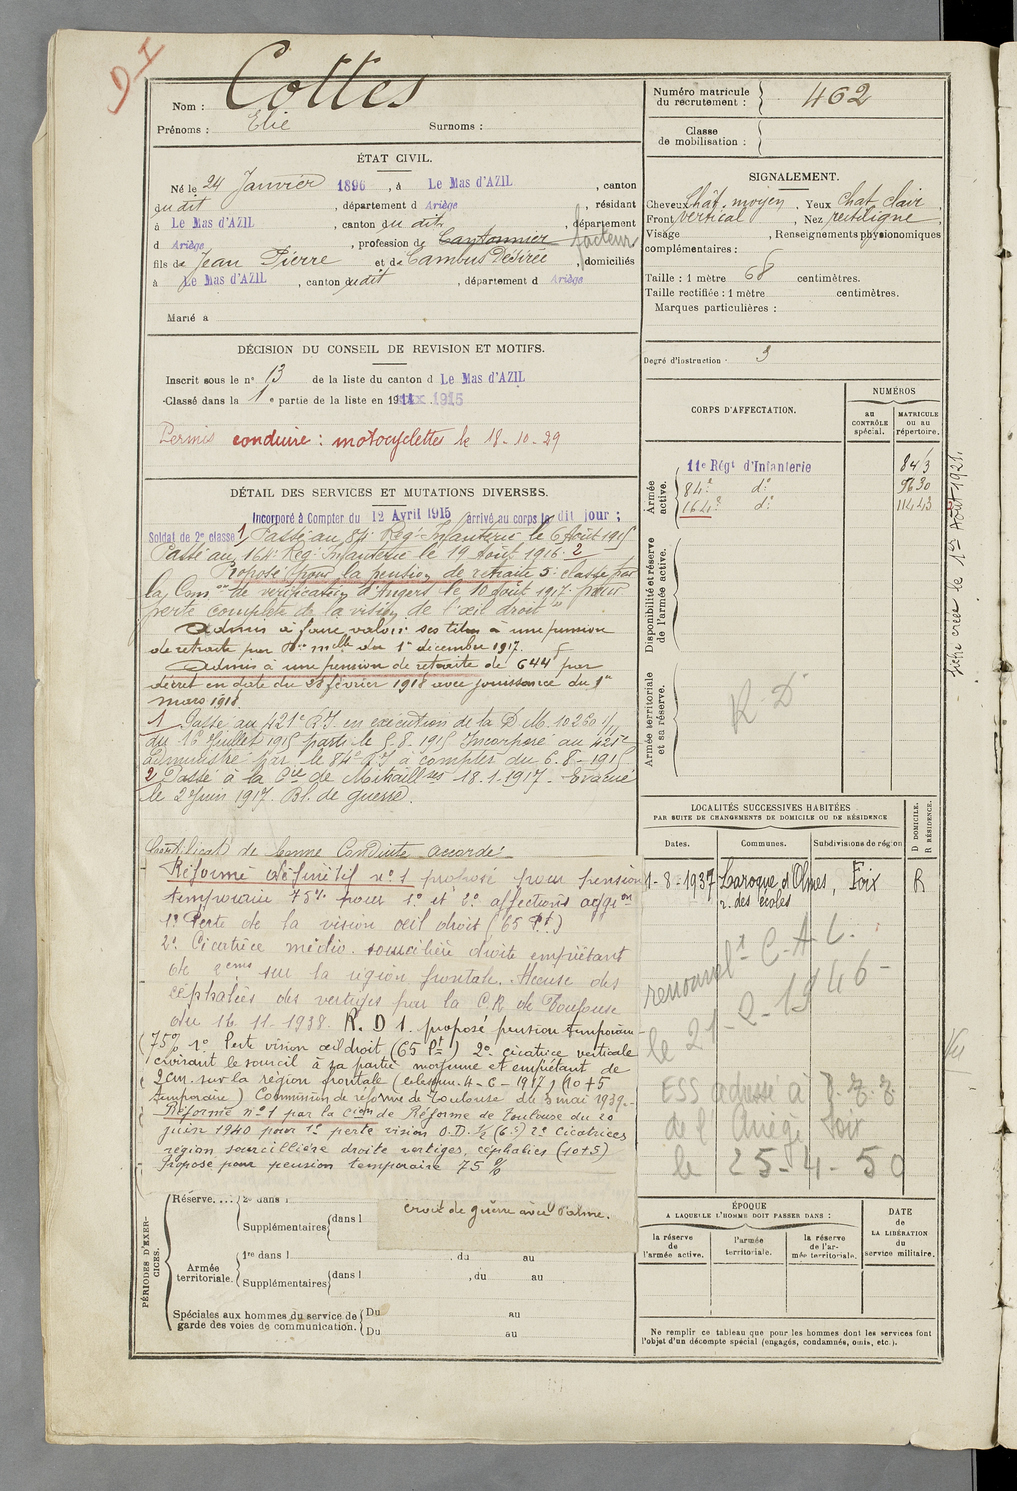 DI
Nom : Cottes
Prénoms : Elie Surnoms :
ÉTAT CIVIL.
Né le 24 Janvier 1896, à Le Mas d'AZIL, canton
du dit, département d Ariège, résidant
à Le Mas d'AZIL, canton du dit, département
d Ariège, profession de Cantonnier facteur
fils de Jean Pierre et de Cambus Désirée, domiciliés
à Le Mas d'AZIL, canton dudit, département d Ariège
Marié à
DÉCISION DU CONSEIL DE REVISION ET MOTIFS.
Inscrit sous le n° 13 de la liste du canton d Le Mas d'AZIL
Classé dans la 1e partie de la liste en 1915
Permis conduire : motocyclettes le 18-10-29
DÉTAIL DES SERVICES ET MUTATIONS DIVERSES.
Incorporé à Compter du 12 Avril 1915 arrivé au corps le dit jour ;
Soldat de 2e classe 1 Passé au 84e Rég. Infanterie le 6 Août 1915
Passé au 164e Rég. Infanterie le 19 Août 1916. 2
Proposé pour la pension de retraite 5e classe par
la Comon de vérification d'Angers le 10 août 1917 pour
perte complète de la vision de l'œil droit"
Admis à faire valoir ses titres à une pension
de retraite par Don mielle du 1er décembre 1917.
Admis à une pension de retraite de 644f par
décret en date du 23 février 1918 avec jouissance du 1er
mars 1918.
1 Passé au 421e R.I. en exécution de la D.M. 10260 1/11
du 16 Juillet 1915 parti le 5.8.1915 Incorporé au 421e
administré par le 84e R.I à compter du 6-8-1915
2 Passé à la Cie de Mitrailleuses 18.1.1917 - Evacué
le 2 Juin 1917. Bl. de guerre.
Certificat de bonne Conduite accordé
Réforme définitif n° 1 proposé pour pension
temporaire 75% pour 1° et 2° affections aggon
1° Perte de la vision œil droit (65 P.t)
2° Cicatrice médio. sourcilière droite empiétant
de 2cms sur la région frontale. Accuse des
céphalées des vertiges par la C.R. de Toulouse
du 16.11.1938. R.D 1. proposé pension temporaire
75% 1° Perte vision œil droit (65 Pt) 2° cicatrice verticale
croisant le sourcil à sa partie moyenne et empiétant de
2 cm. sur la région frontale (eclespm. 4-6-1917) (10+5
temporaire) Commission de réforme de Toulouse du 3 mai 1939.-
Réformé n° 1 par la cion de Réforme de Toulouse du 20
juin 1940 pour 1° perte vision O.D. 2° Cicatrices
région sourcillière droite vertiges, céphalées (10+5)
Proposé pour pension temporaire 75 %
PÉRIODES D'EXERCICES.
Réserve.... 2e dans l
Supplémentaires dans l
croix de guerre avec Palme.
Armée territoriale. 1re dans l , du au
Supplémentaires dans l , du au
Spéciales aux hommes du service de garde des voies de communication. Du au
Du au
Numéro matricule du recrutement : 462
Classe de mobilisation :
SIGNALEMENT.
Cheveux Chât. moyen, Yeux Chat. clair,
Front vertical, Nez rectiligne,
Visage , Renseignements physionomiques
complémentaires :
Taille : 1 mètre 68 centimètres.
Taille rectifiée : 1 mètre centimètres.
Marques particulières :
Degré d'instruction . 3
CORPS D'AFFECTATION.
NUMÉROS
au CONTRÔLE spécial.
MATRICULE ou au répertoire.
Armée active.
11e Régt d'Infanterie 843
84e d° 9630
164e d° 11443
Disponibilité et réserve de l'armée active.
Armée territoriale et sa réserve.
R. D
LOCALITÉS SUCCESSIVES HABITÉES
PAR SUITE DE CHANGEMENTS DE DOMICILE OU DE RÉSIDENCE
D DOMICILE.
R RÉSIDENCE.
Dates. Communes. Subdivisions de région
1-8-1937 Laroque d'Olmes, Foix R
r. des écoles
renouvelt C.A.L.
le 21-2-1946-
ESS adressé à
de l'Ariège Foix
le 25-4-50
ÉPOQUE
A LAQUELLE L'HOMME DOIT PASSER DANS :
la réserve de l'armée active.
l'armée territoriale.
la réserve de l'armée territoriale.
DATE de LA LIBÉRATION du service militaire.
Ne remplir ce tableau que pour les hommes dont les services font
l'objet d'un décompte spécial (engagés, condamnés, omis, etc.).
créée le 1er Août 1921.